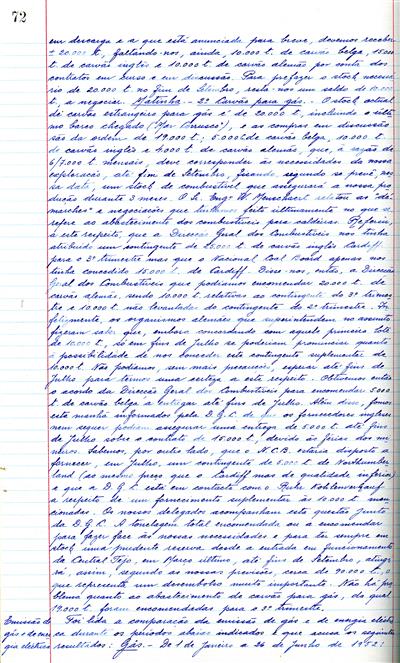 72
em descarga e a que está anunciada para breve, devemos receber
± 20.000 t, faltando-nos, ainda, 10.000 t. de carvão belga, 15.000
t. de carvão inglês e 10.000 t. de carvão alemão por conta dos
contratos em curso e em discussão. Para prefazer o stock necessá
rio de 20.000 t. no fim de Setembro, resta-nos um saldo de 10.000
t. a negociar. Matinha - 2º Carvão para gás. - O stock actual
de carvão estrangeiro para gás é de 20.000 t, incluindo o últi
mo barco chegado, e as compras em discussão
são da ordem de 19.000 t: 5.000 t. de carvão belga, 10.000 t.
de carvão inglês e 4.000 t. de carvão alemão, que, à razão de
6/7.000 t. mensais, deve corresponder às necessidades da nossa
exploração, até fim de Setembro, ficando, segundo se prevê, nes
sa data, um stock de combustível que assegurará a nossa pro
dução durante 3 meses. O Sr. Engº W. relatou as "dé
marches" e negociações que tivemos feito ultimamente no que se
refere ao abastecimento dos combustíveis desse sólidos. Referiu,
a este respeito, que a Direcção Geral dos Combustíveis nos tinha
atribuído um contingente de 25.000 t. de carvão inglês Cardiff
para o 3º trimestre mas que o National Coal Board apenas nos
tinha concedido 15.000 t. de Cardiff. Disse-nos, então, a Direcção
Geral dos Combustíveis que podíamos encomendar 20.000 t. de
carvão alemão, sendo 10.000 t. relativas ao contingente do 3º trimes
tre e 10.000 t. não levantadas do contingente do 2º trimestre. In
felizmente, os organismos alemães que superintendem no assunto
fizeram saber que, embora concordando com aquele primeiro lote
de 10.000 t, só em fins de Julho se poderiam pronunciar quanto
à possibilidade de nos conceder este contingente suplementar de
10.000 t. Não podíamos, sem mais precaução, esperar até fins de
Julho para termos uma certeza a este respeito. Obtivemos então
o acordo da Direcção Geral dos Combustíveis para encomendar 5.000
t. de carvão belga a entregar até fins de Julho. Além disso, fomos
esta manhã informados pela D.G.C. de que os fornecedores ingleses
nem sequer podiam assegurar uma entrega de 5.000 t. até fins
de Julho sobre o contrato de 15.000 t, devido às férias dos mi
neiros. Sabemos, por outro lado, que o N.C.B. estaria disposto a
fornecer, em Julho, um contingente de 5.000 t. de Northumber
land (ao mesmo preço que o Cardiff mas de qualidade inferior)
e que a D.G.C. está em contacto com o Ruhr Kohlenverkauf
a respeito de um fornecimento suplementar às 10.000 t. men
cionadas. Os nossos delegados acompanham esta questão junto
da D.G.C. A tonelagem total encomendada ou a encomendar
para fazer face às nossas necessidades e para ter sempre em
stock uma prudente reserva desde a entrada em funcionamento
da Central Tejo, em Março último, até fins de Setembro, atingi
rá, assim, segundo as nossas previsões, cerca de 90.000 t, o
que representa um desembolso muito importante. Não há pro
blema quanto ao abastecimento de carvão para gás, do qual
19.000 t. foram encomendadas para o 3º trimestre.
Emissão de Foi lida a comparação da emissão de gás e de energia eléctri
gás e de ener ca durante os períodos abaixo indicados e que acusa os seguintes
gia eléctrica resultados: Gás. - De 1 de Janeiro a 26 de Junho de 1952: